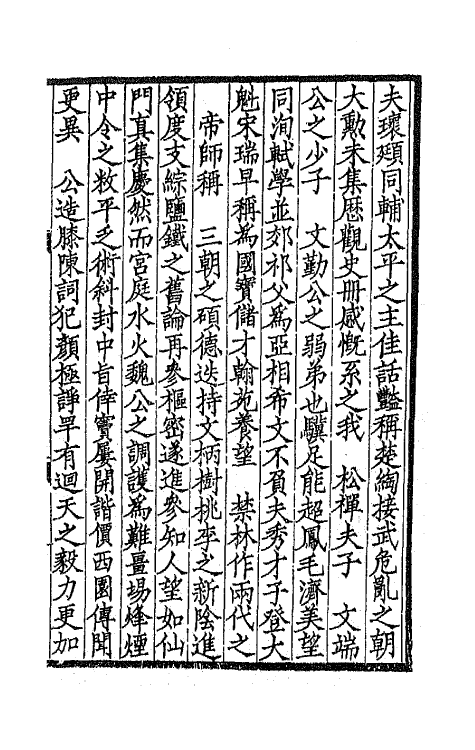 夫瓌頲同輔太平之主佳話豔稱楚綯接武危亂之朝
大勳未集歴觀史册感慨系之我　松禪夫子　文端
公之少子　文勤公之弱弟也驥足能超鳳毛濟美望
同洵軾學並郊祁父爲亞相希文不負夫秀才子登大
魁宋瑞早稱爲國寶儲才翰苑養望　禁林作兩代之
　帝師稱　三朝之碩德迭持文柄樹桃李之新陰進
領度支綜鹽鐵之舊論再參樞密遂進參知人望如仙
門真集慶然而宮庭水火魏公之調護爲難畺場烽煙
中令之救平乏術斜封中旨倖竇屢開諧價西園傳聞
更異　公造膝陳詞犯顏極諍早有迴天之毅力更加